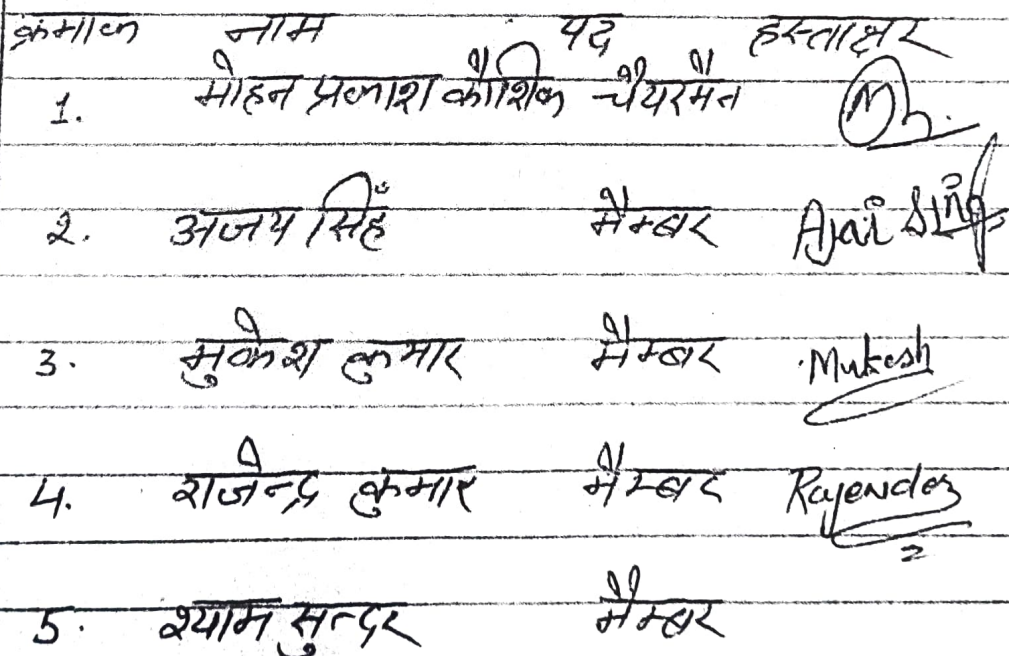 क्रमांक नाम पद हस्ताक्षर
1. मोहन प्रकाश कौशिक चैयरमैन
2. अजय सिंह मैम्बर Ajai Singh
3. मुकेश कुमार मैम्बर Mukesh
4. राजेन्द्र कुमार मैम्बर Rajender
5. श्याम सुन्दर मैम्बर